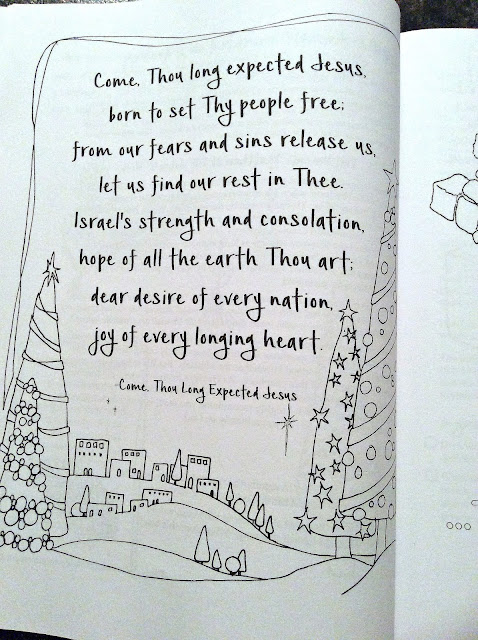 Come, Thou long expected Jesus,
born to set Thy people free;
from our fears and sins release us,
let us find our rest in Thee.
Israel's strength and consolation,
hope of all the earth Thou art;
dear desire of every nation,
joy of every longing heart.
Come, Thou Long Expected Jesus